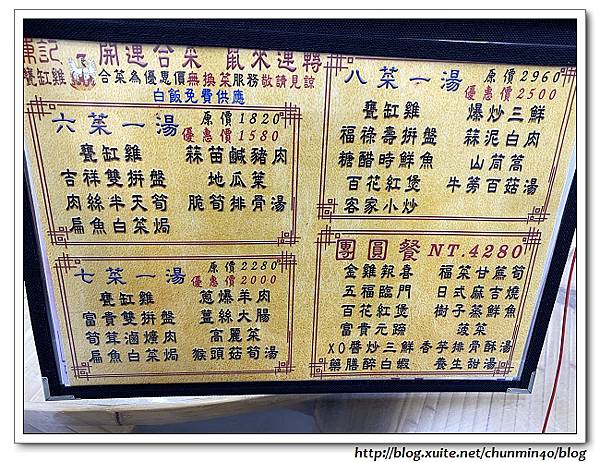 開運合菜 鼠來運轉
甕缸雞
合菜為優惠價無換菜服務敬請見諒
白飯免費供應
六菜一湯
原價1820
優惠價1580
甕缸雞 蒜苗鹹豬肉
吉祥雙拼盤 地瓜葉
肉絲半天筍 脆筍排骨湯
扁魚白菜焗
七菜一湯
原價2280
優惠價2000
甕缸雞 蔥爆羊肉
富貴雙拼盤 薑絲大腸
筍茸滷爌肉 高麗菜
扁魚白菜焗 猴頭菇筍湯
八菜一湯
原價2960
優惠價2500
甕缸雞 爆炒三鮮
福祿壽拼盤 蒜泥白肉
糖醋時鮮魚 山茼蒿
百花紅煲 牛蒡百菇湯
客家小炒
團圓餐 NT.4280
金雞報喜 福菜甘蔗筍
五福臨門 日式麻吉燒
百花紅煲 樹子蒸鮮魚
富貴元蹄 菠菜
XO醬炒三鮮 香芋排骨酥湯
藥膳醉白蝦 養生甜湯
http://blog.xuite.net/chunmin40/blog